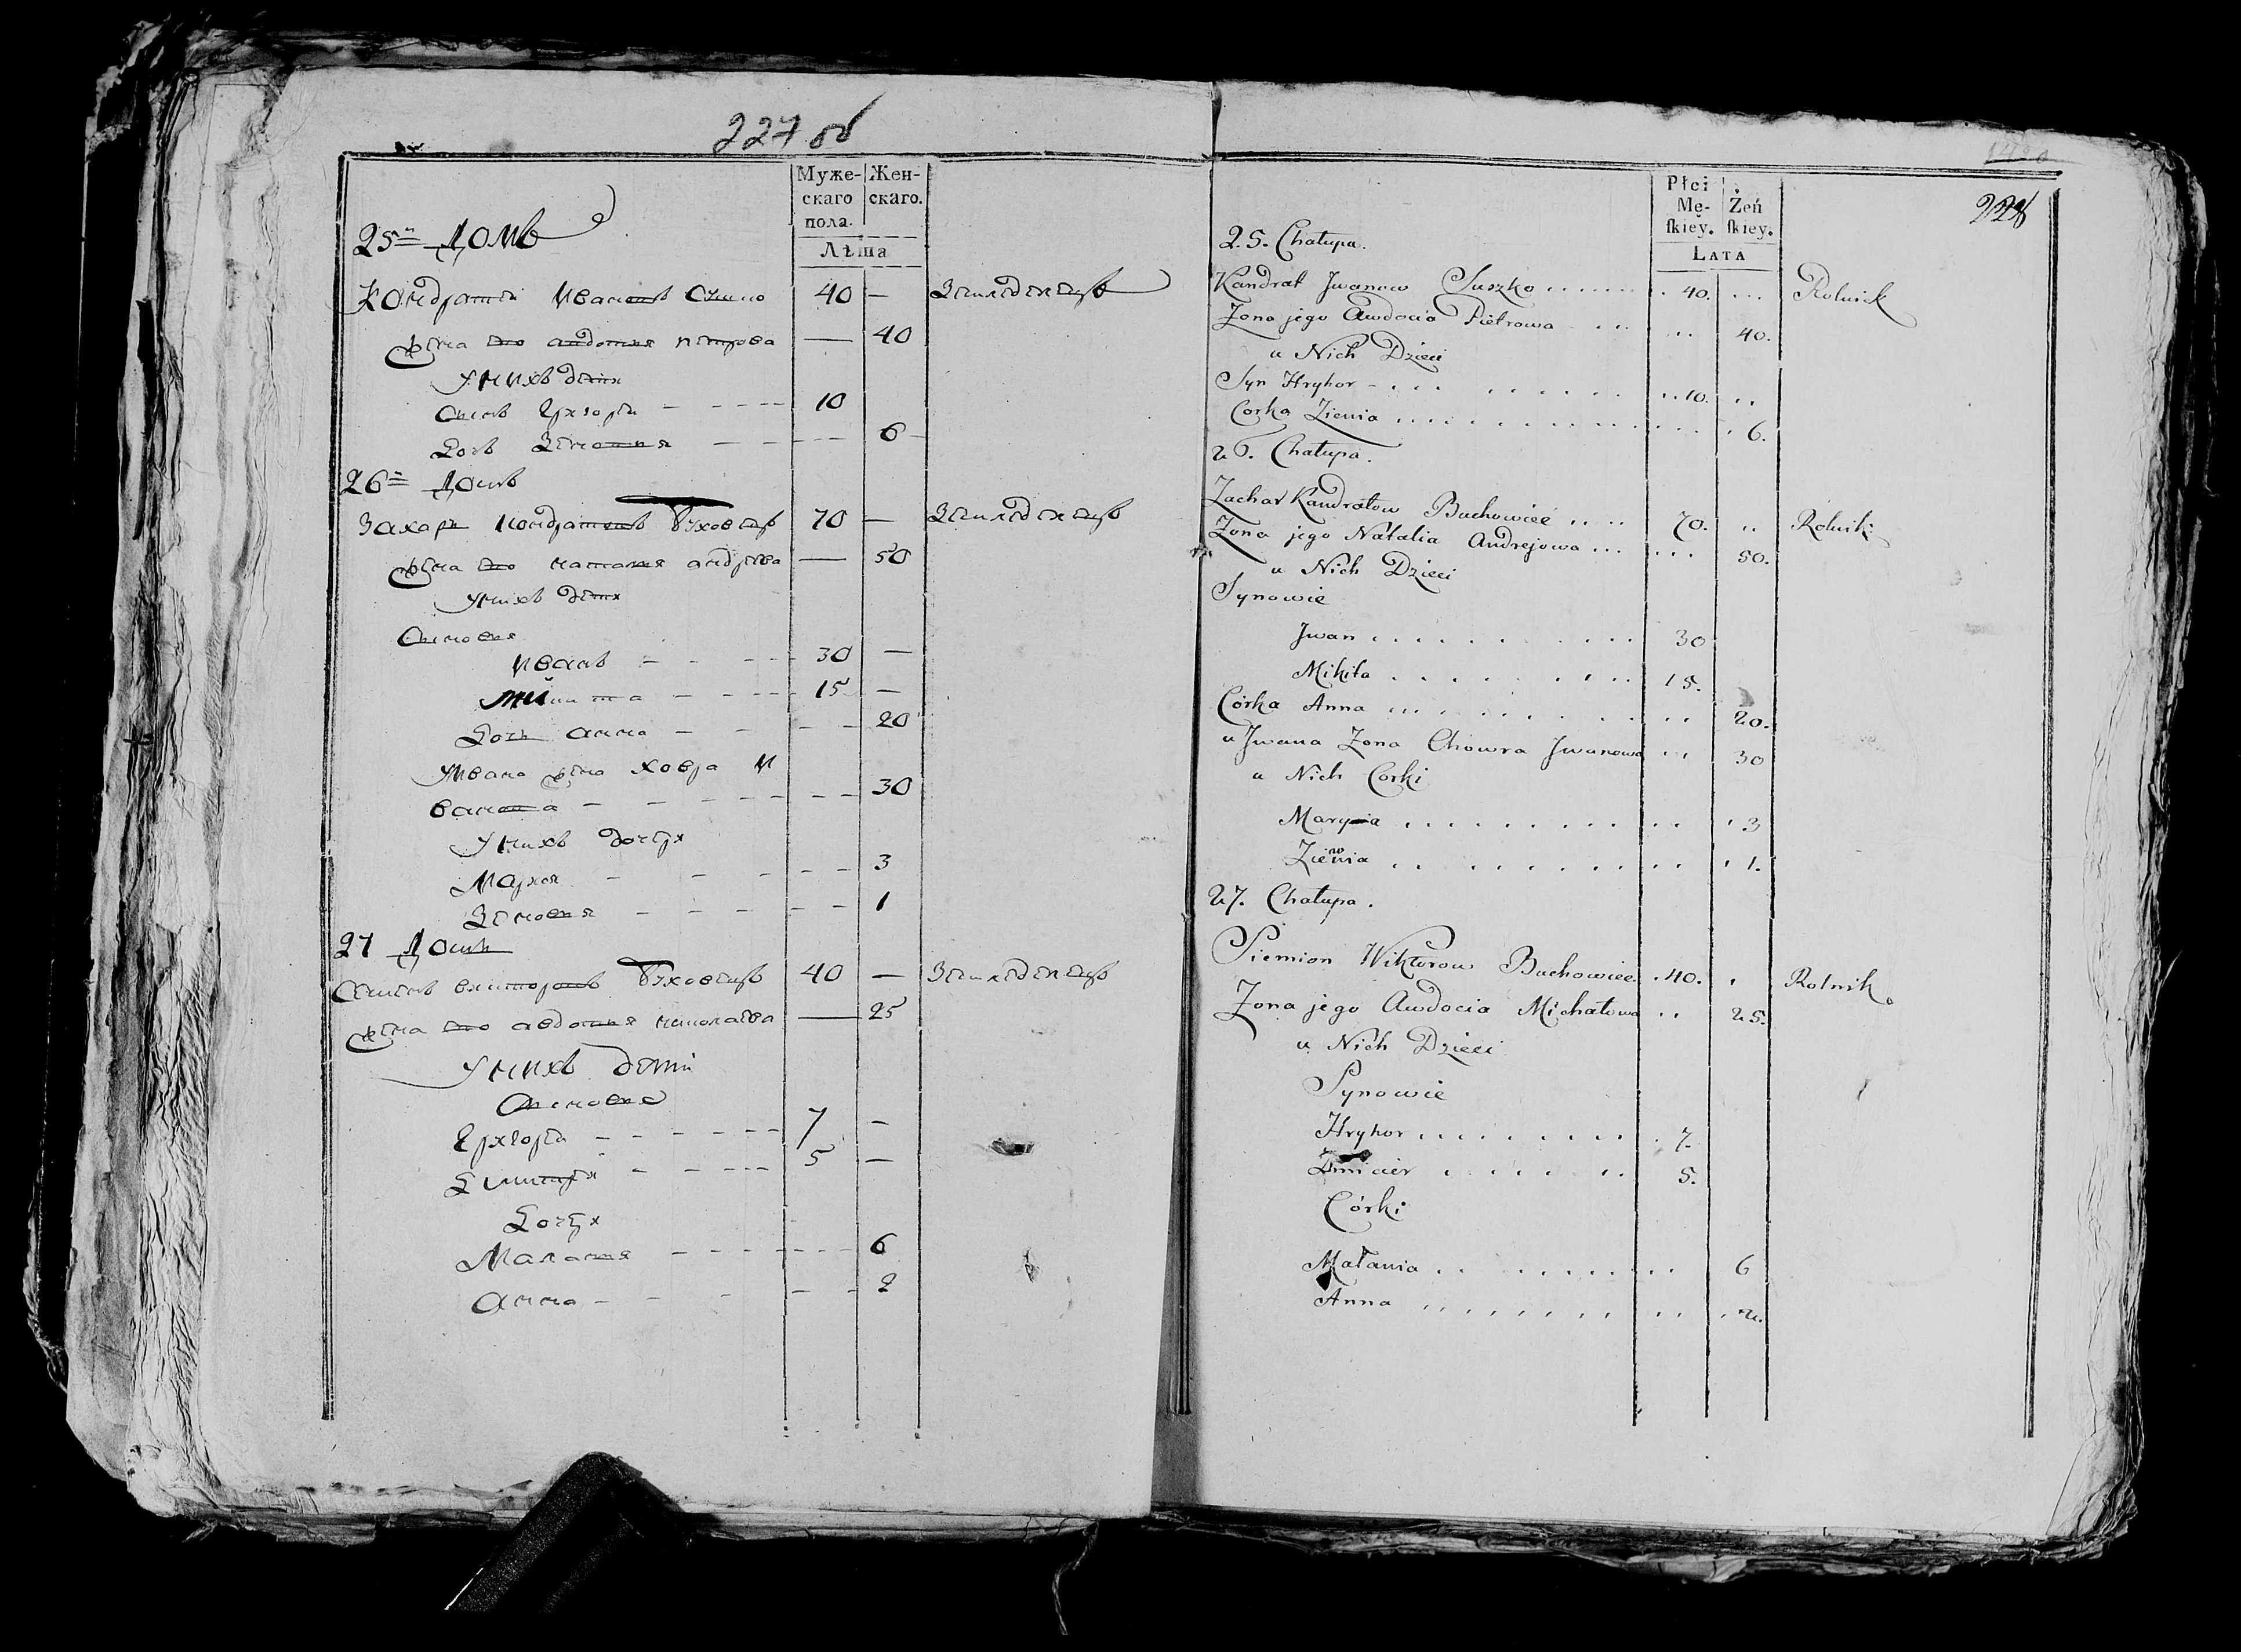 227 об
Муже-
скаго
пола.
Жен-
скаго.
Лѣта
25й Домъ
Кондратей Ивановъ Сушко 40 — Земледелецъ
жена его авдотия петрова — 40
У нихъ дети
Сынъ Григорей - - - - 10
Дочь Зеновия - - - - 6
26й Домъ
Захаръ Кондратовъ Буховецъ 70 — Земледелецъ
жена его наталия андреева — 50
У нихъ дети
Сыновя
Иванъ - - - - 30 —
Микита - - - - 15 —
Дочь анна - - - - 20
У Ивана жена ховра И
ванова - - - - - - - 30
У нихъ дочери
Мария - - - - - 3
Зеновия - - - - - 1
27 Домъ
Семенъ викторовъ Буховецъ 40 — Земледелецъ
жена его авдотия николаева — 25
У нихъ дети
Сыновя
Григорей - - - - - - 7 —
Дмитрей - - - - - 5 —
Дочери
Малания - - - - - - - 6
Анна - - - - - 2
228
Płci
Mę-
skiey.
Żeń
skiey.
LATA
25. Chałupa.
Kandrat Jwanow Suszko . . . . . . 40. . . . Rolnik
Zona jego Awdocia Pietrowa . . . . . . 40.
u Nich Dzieci
Syn Hryhor . . . . . . . . . . 10. . .
Corka Zienia . . . . . . . . . . . . 6.
26. Chałupa.
Zachar Kandratow Buchowiec . . . . 70. . . Rolnik
Zona jego Natalia Andrejowa . . . . . . 50.
u Nich Dzieci
Synowie
Jwan . . . . . . . . . 30
Mikita . . . . . . . . . 15.
Córka Anna . . . . . . . . . . . 20.
u Jwana Zona Chowra Jwanowa . . 30
u Nich Corki
Marya . . . . . . . . . . . . 3
Zienowia . . . . . . . . . . . 1.
27. Chałupa.
Siemion Wiktorow Buchowiec . 40. . Rolnik
Zona jego Awdocia Michałowa . . 25.
u Nich Dzieci
Synowie
Hryhor . . . . . . . . . 7.
Dmicier . . . . . . . 5.
Córki
Małania . . . . . . . . . . 6
Anna . . . . . . . . . . . 2.